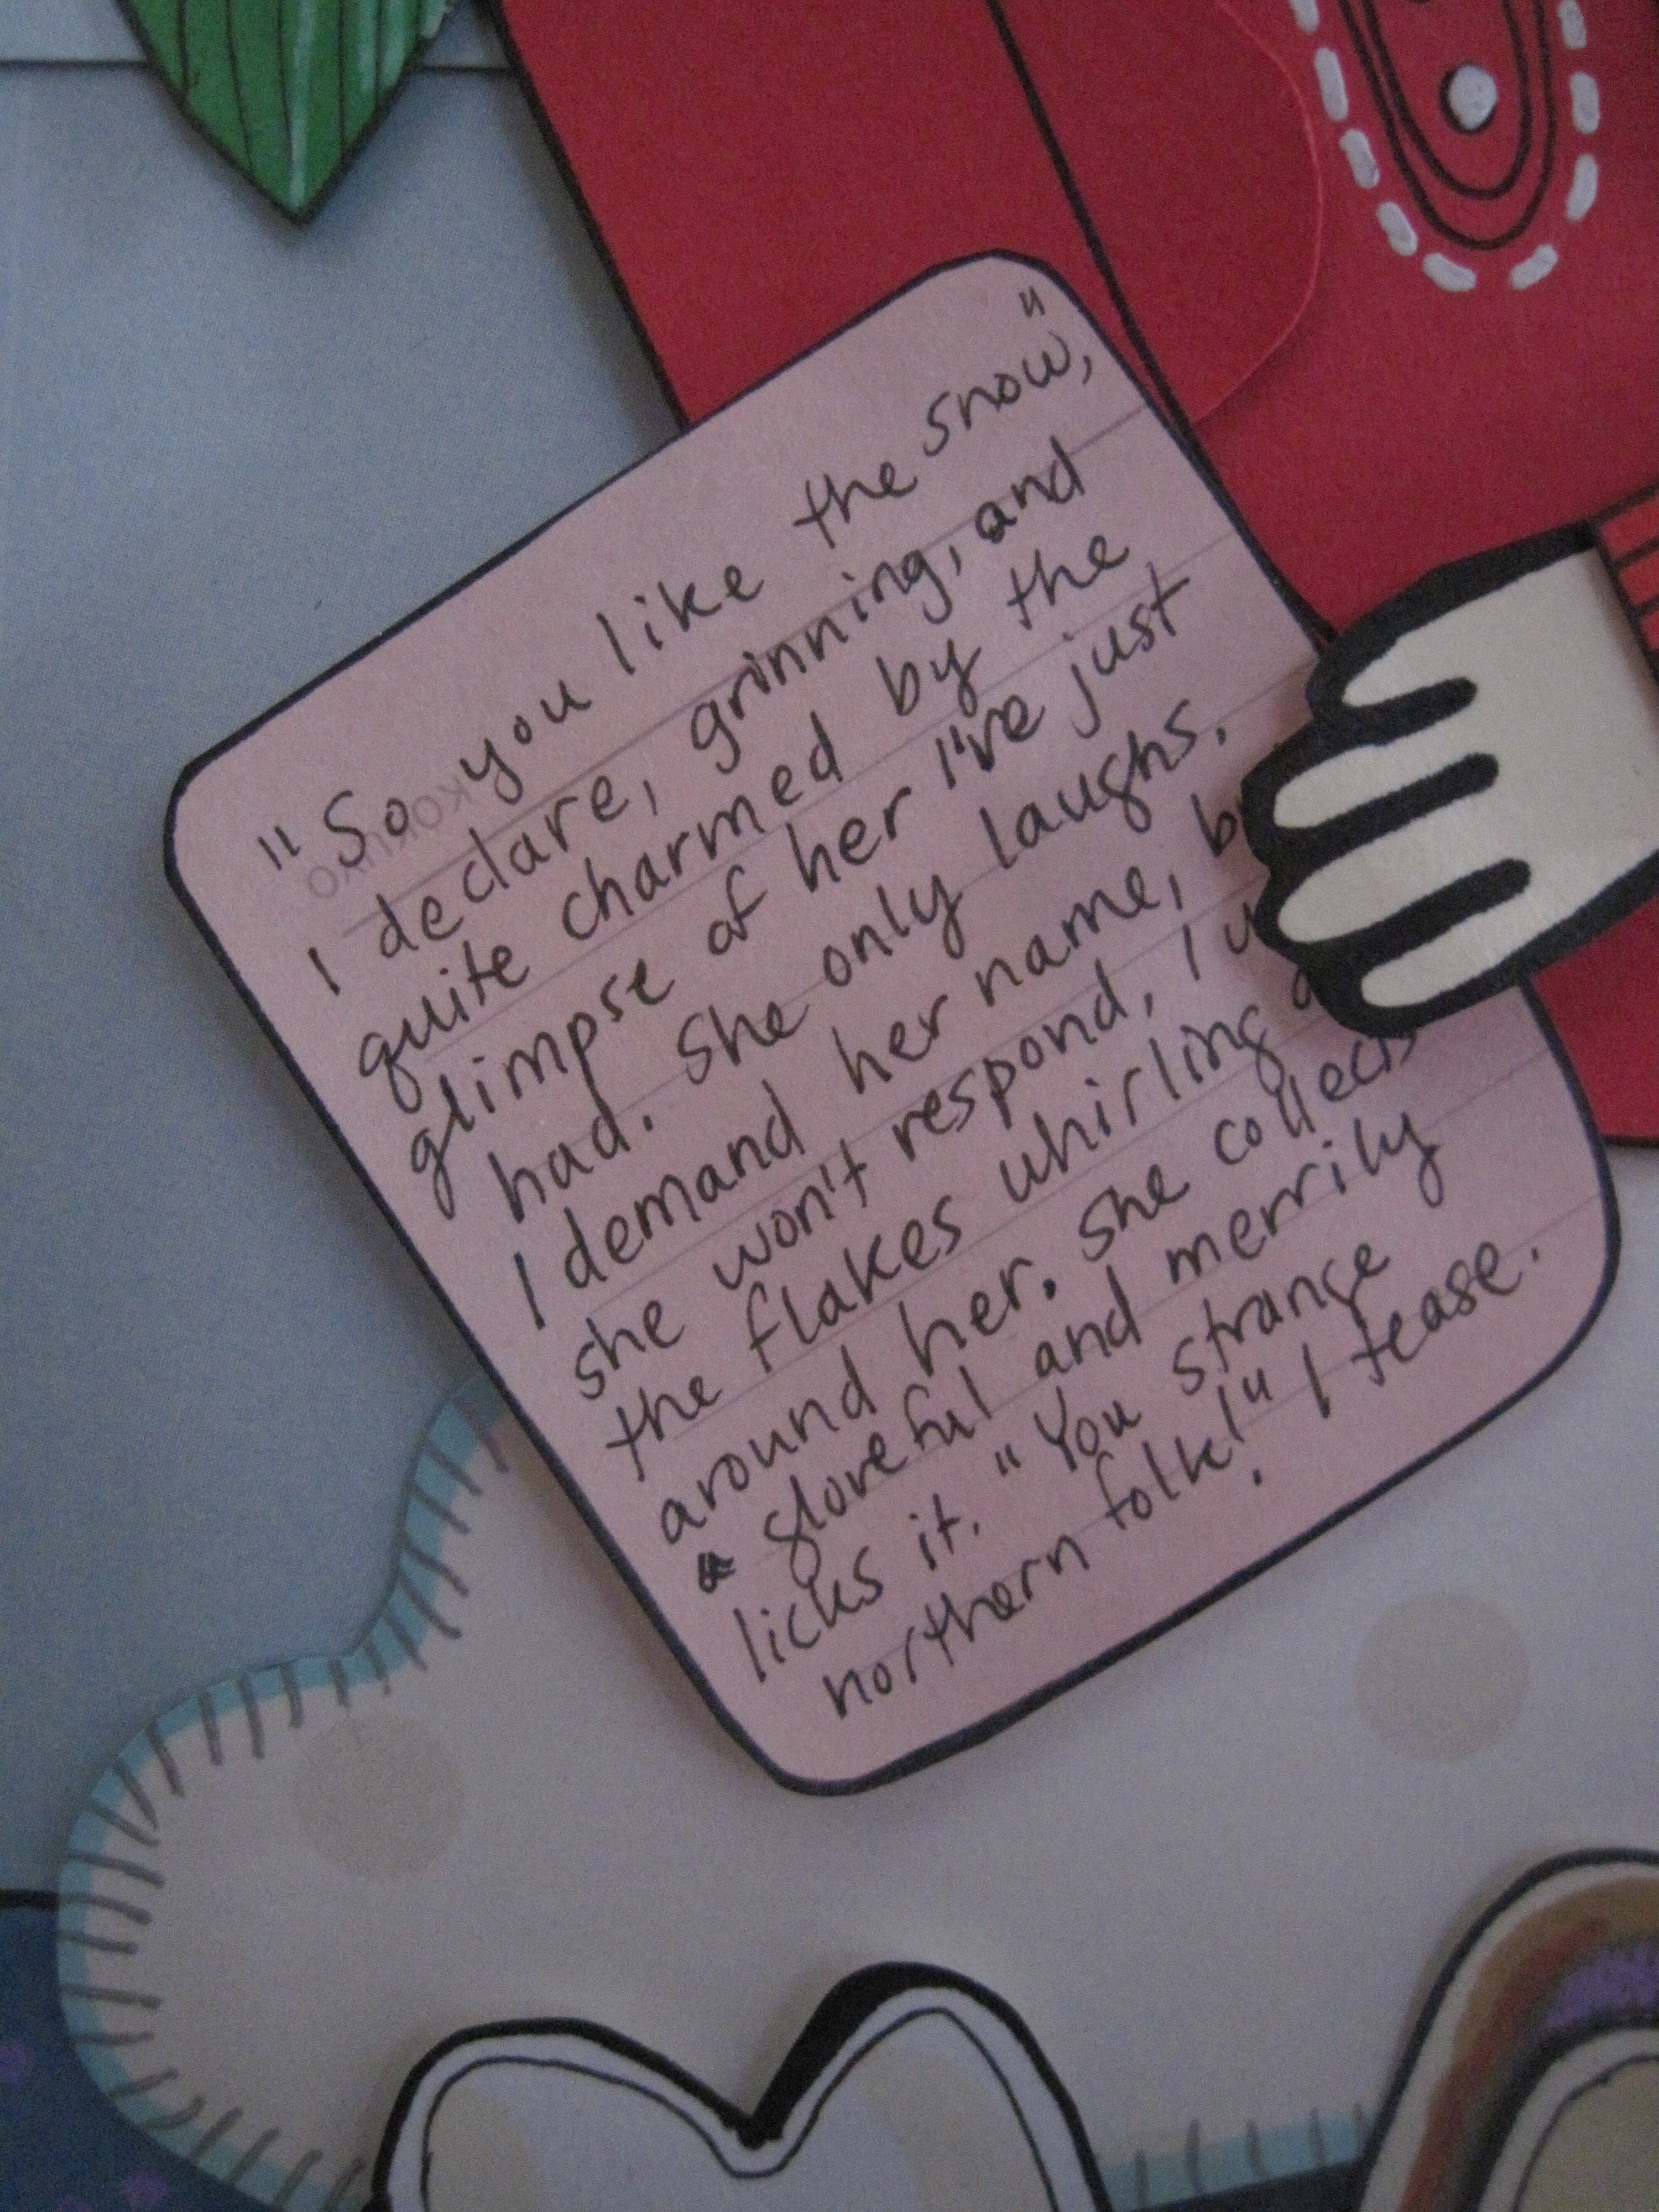 "So you like the snow,"
I declare, grinning, and
quite charmed by the
glimpse of her I've just
had. She only laughs.
I demand her name,
she won't respond, I
the flakes whirling
around her. She collects
a gloveful and merrily
licks it. "You strange
northern folk!" I tease.